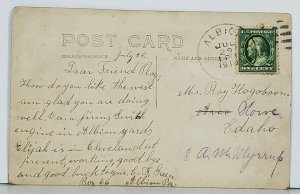 POST CARD
CORRESPONDENCE
NAME AND ADDRESS
ALBION
July 24
Dear Friend Ray
How do you like the west
am glad you are doing
well. I am firing
engine in Albion yards
Elijah is in Cleveland at
present, working, good bye
and good luck to you
Box 66 Albion Pa.
Mr. Ray Hogoboom
Arco Howe
Idaho